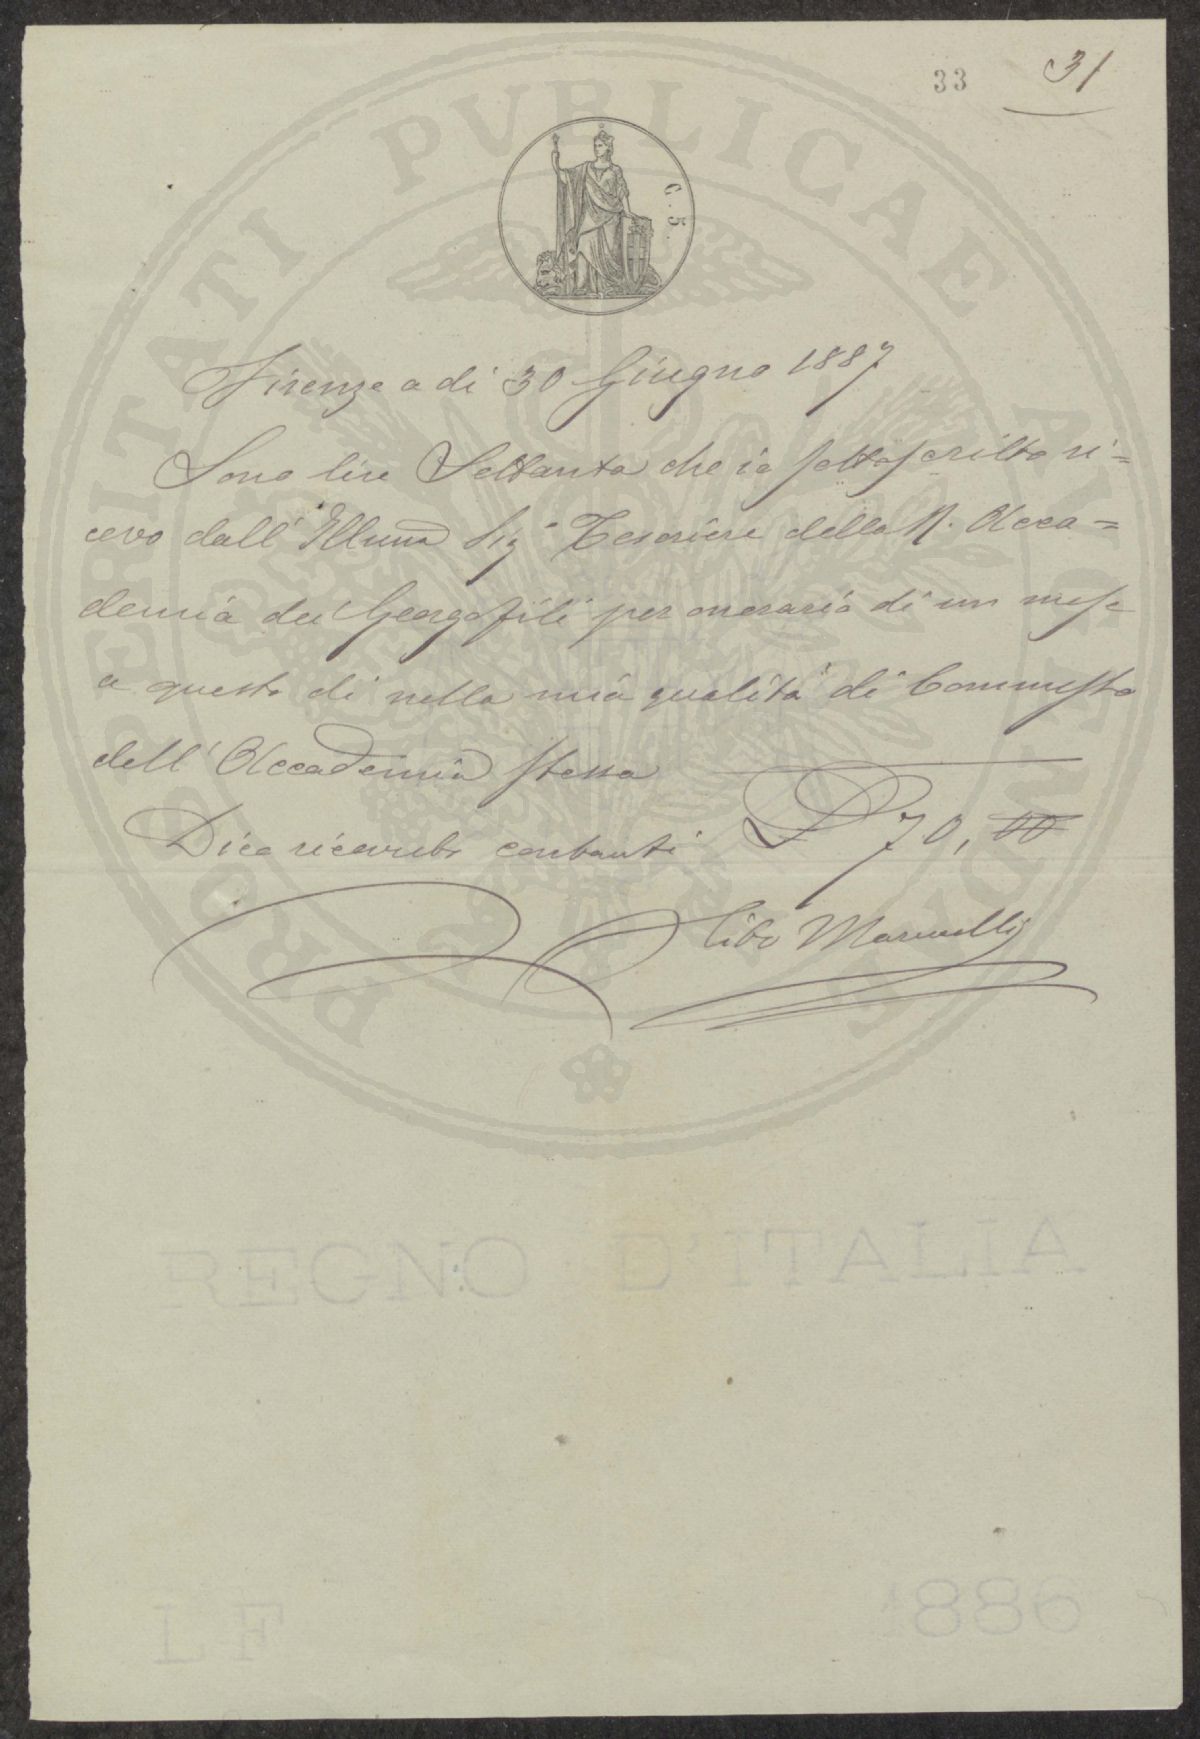 33 31
C. 5.
PROSPERITATI PUBLICAE AUGENDAE
Firenze a di 30 Giugno 1887
Sono lire Settanta che io sottoscritto ri=
cevo dall' Illumo Sigr Tesoriere della R. Acca=
demia dei Georgofili per onorario di un mese
a questo dì nella mia qualità di Commesso
dell' Accademia stessa
Dico ricevute contanti £ 70,00
Cibo Marinelli
REGNO D'ITALIA
LF 1886